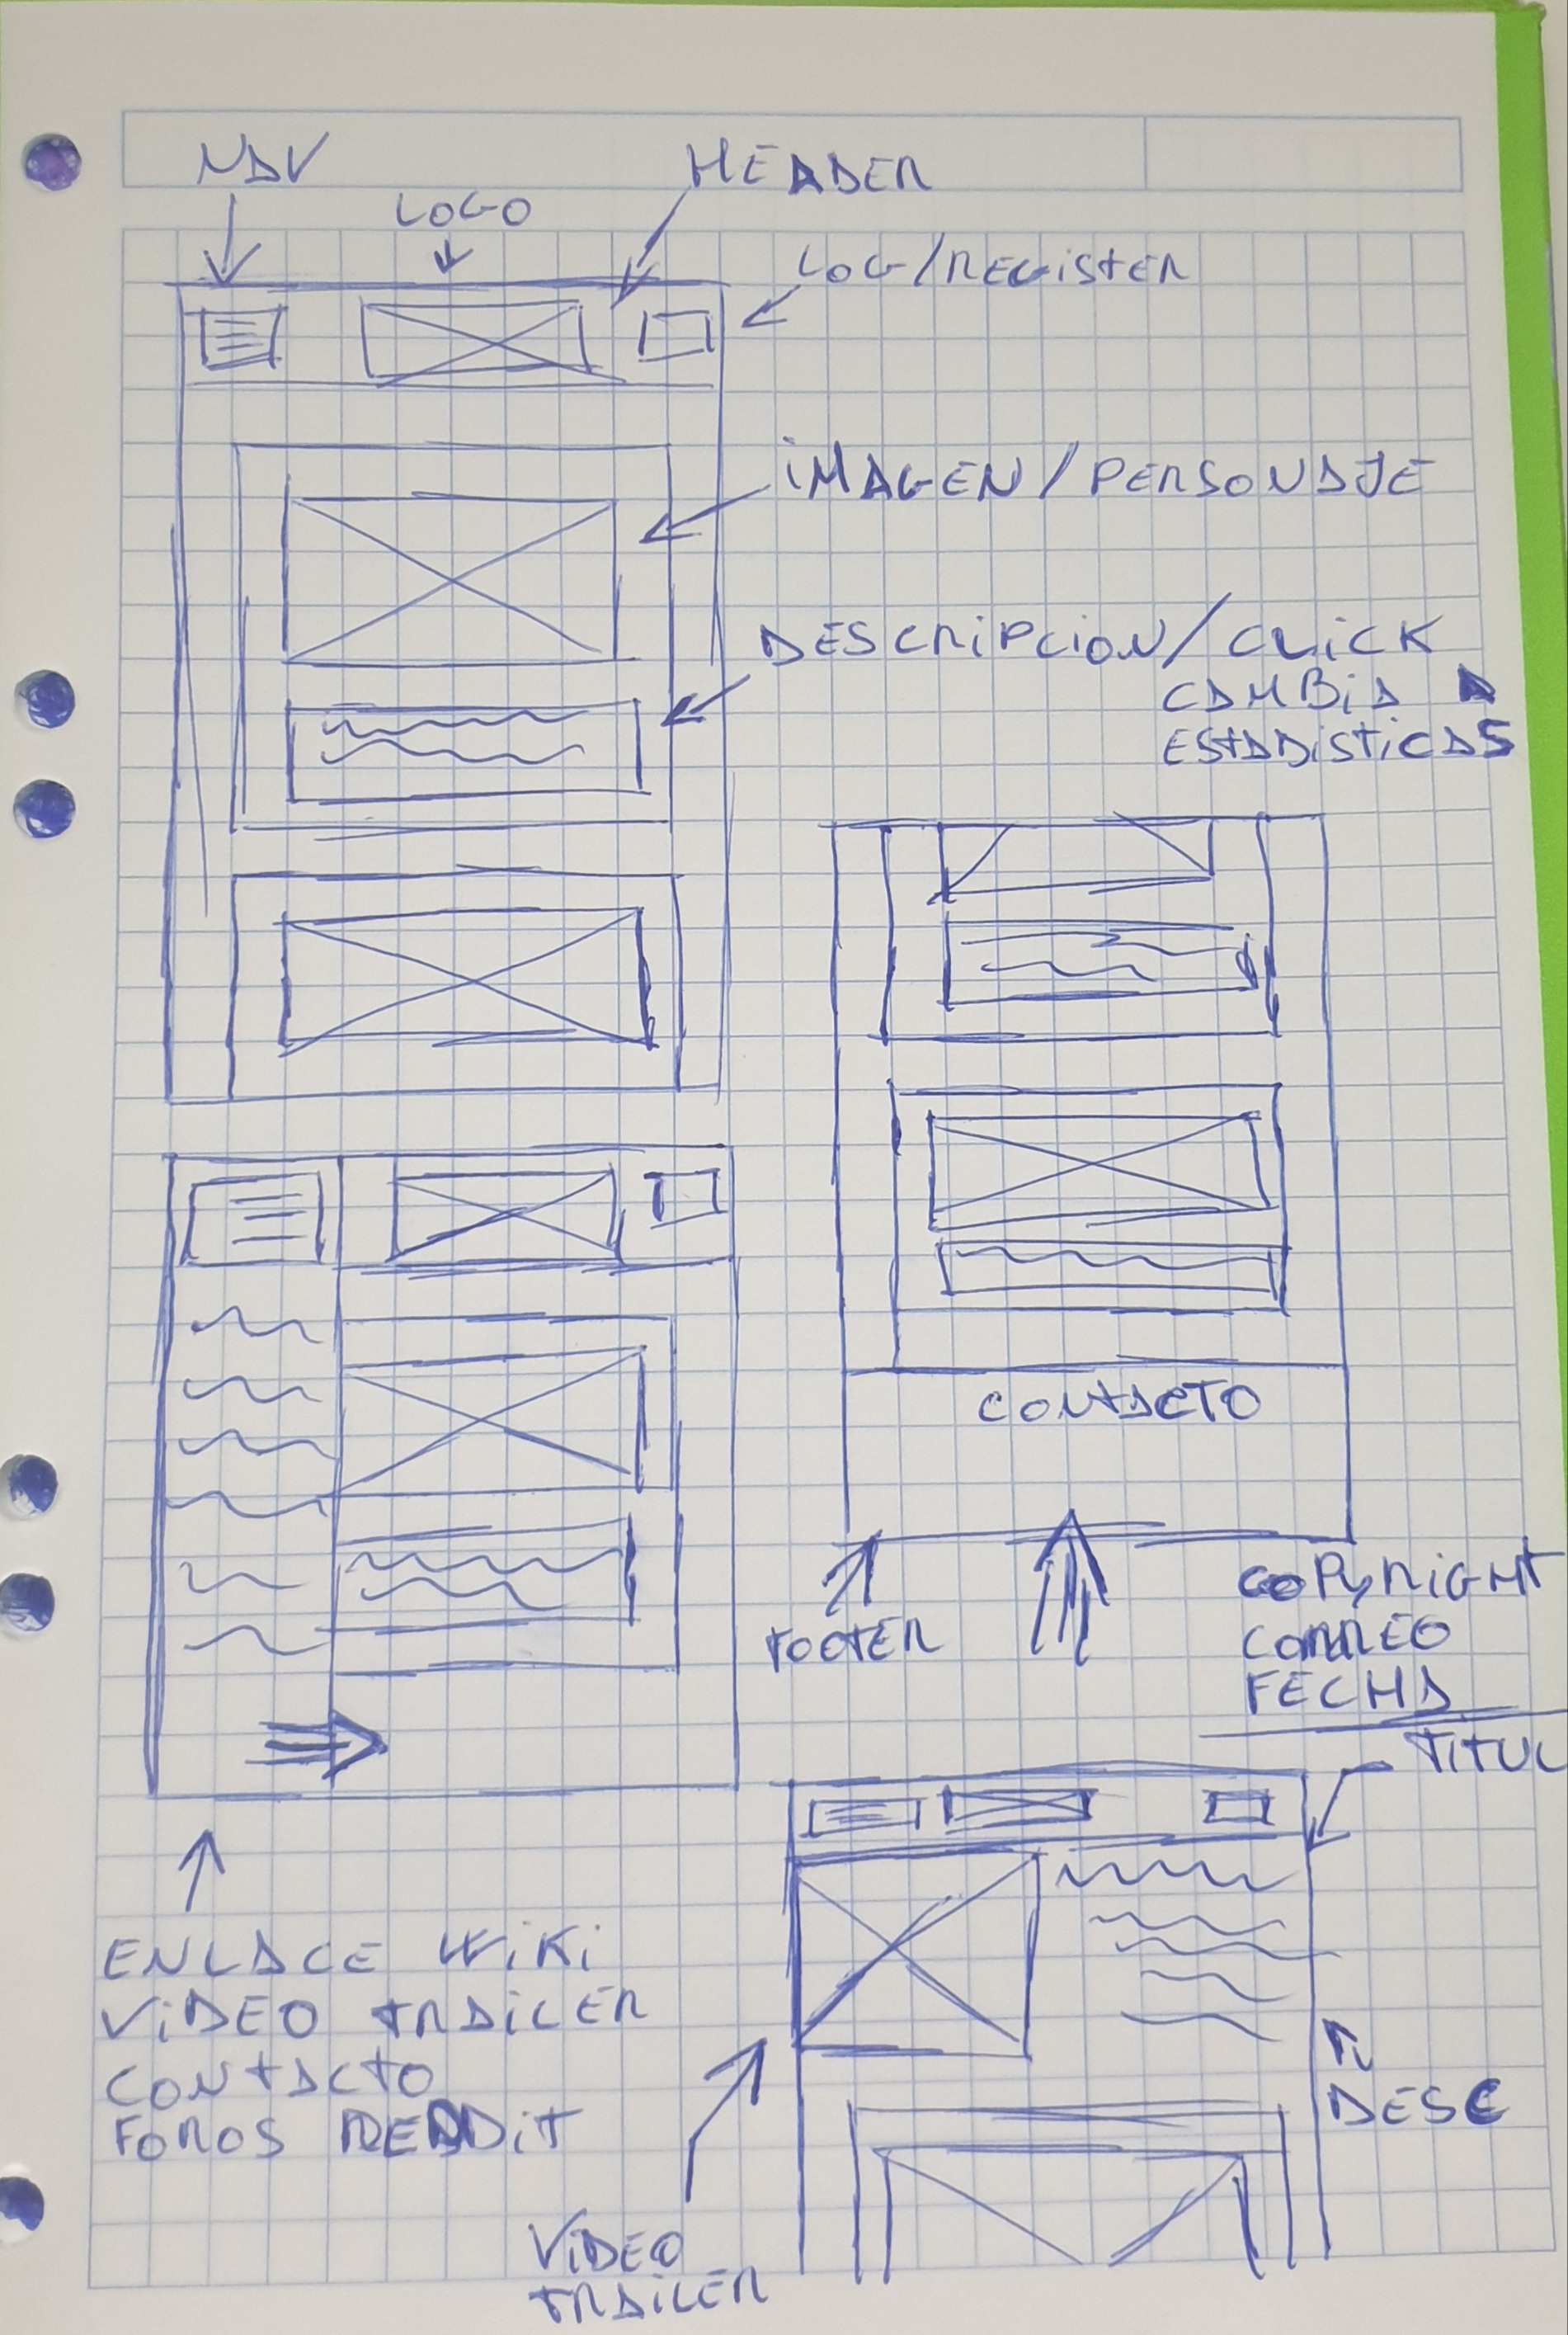 NAV
LOGO
HEADER
LOG/REGISTER
IMAGEN/PERSONAJE
DESCRIPCION/CLICK
CAMBIA A
ESTADISTICAS
CONTACTO
FOOTER
COPYRIGHT
CORREO
FECHA
TITUL
ENLACE WIKI
VIDEO TRAILER
CONTACTO
FOROS REDDIT
DESC
VIDEO
TRAILER